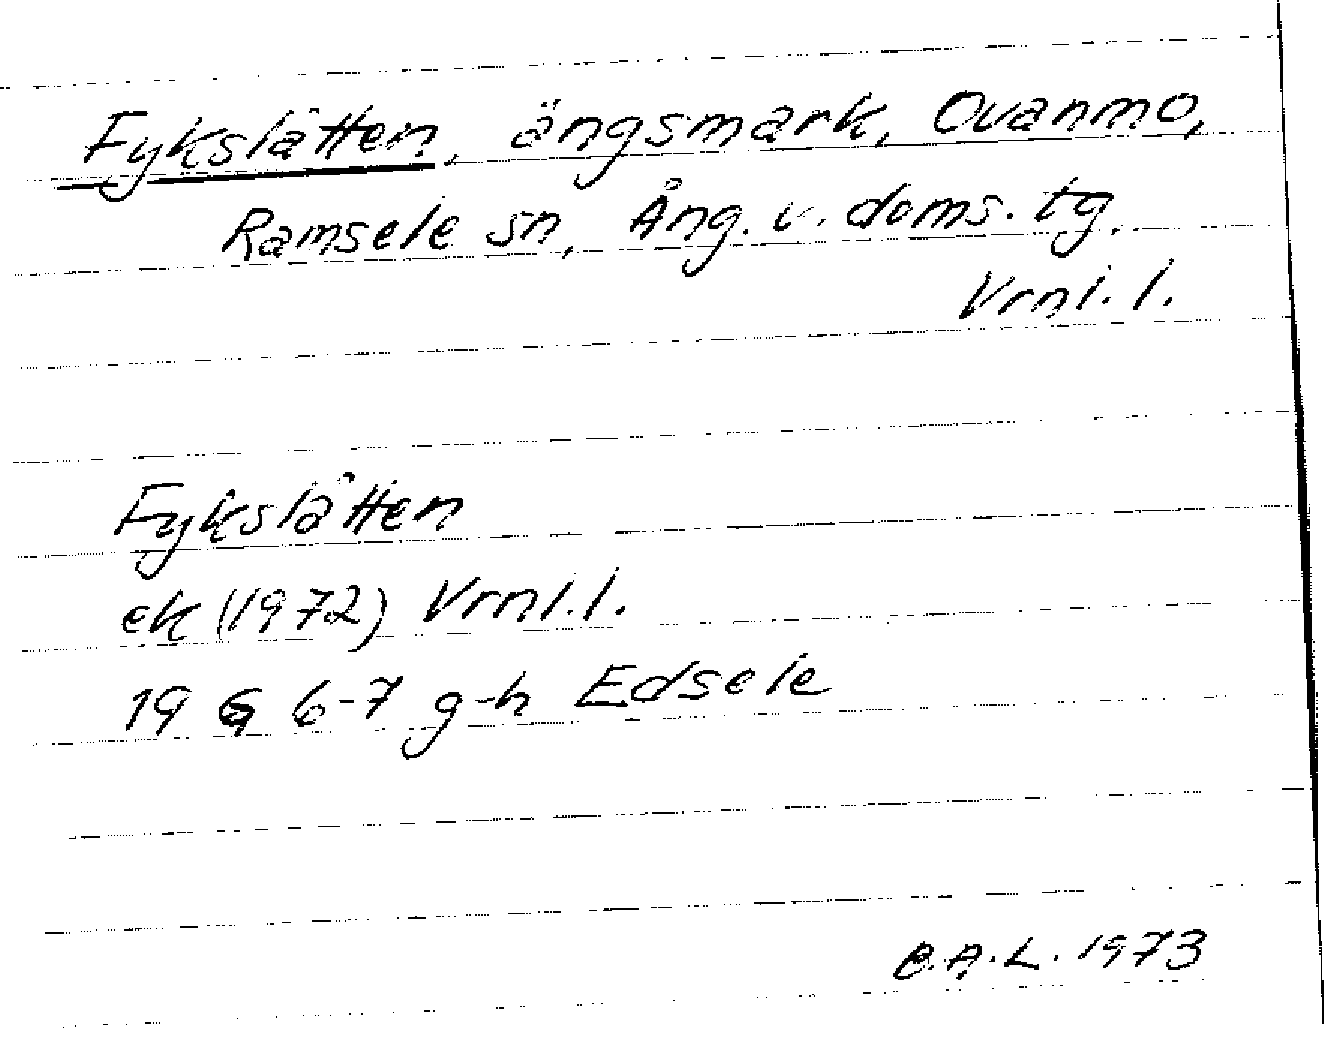 Fykslåtten, ängsmark, Ovanmo,
Ramsele sn, Ång. v. doms. tg.
Vrnl. l.
Fykslåtten
ek (1972) Vrnl. l.
19 G 6-7 g-h Edsele
B.A.L. 1973